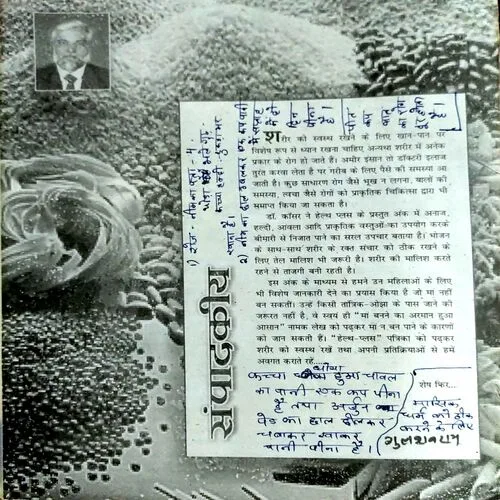 संपादकीय
शरीर को स्वस्थ रखने के लिए खान-पान पर
विशेष रूप से ध्यान रखना चाहिए अन्यथा शरीर में अनेक
प्रकार के रोग हो जाते हैं। अमीर इंसान तो डॉक्टरी इलाज
तुरंत करवा लेता है पर गरीब के लिए पैसे की समस्या आ
जाती है। कुछ साधारण रोग जैसे भूख न लगना, बालों की
समस्या, त्वचा जैसे रोगों को प्राकृतिक चिकित्सा द्वारा भी
समाप्त किया जा सकता है।
डॉ. कॉसर ने हेल्थ प्लस के प्रस्तुत अंक में अनाज,
हल्दी, आंवला आदि प्राकृतिक वस्तुओं का उपयोग करके
बीमारी से निजात पाने का सरल उपचार बताया है। भोजन
के साथ-साथ शरीर के रक्त संचार को ठीक रखने के
लिए तेल मालिश भी जरूरी है। शरीर की मालिश करते
रहने से ताजगी बनी रहती है।
इस अंक के माध्यम से हमने उन महिलाओं के लिए
भी विशेष जानकारी देने का प्रयास किया है जो मां नहीं
बन सकतीं। उन्हें किसी तांत्रिक-ओझा के पास जाने की
जरूरत नहीं है, वे स्वयं ही "मां बनने का अरमान हुआ
आसान" नामक लेख को पढ़कर मां न बन पाने के कारणों
को जान सकती हैं। "हेल्थ-प्लस" पत्रिका को पढ़कर
शरीर को स्वस्थ रखें तथा अपनी प्रतिक्रियाओं से हमें
अवगत कराते रहें...
शेष फिर...
धोया
कच्चा हुआ चावल
का पानी एक कप पीना
है तथा अर्जुन
पेड़ का छाल छीलकर
चबाकर खाकर
पानी पीना है।
मासिक
धर्म को ठीक
करने के लिए
गुलशनराय